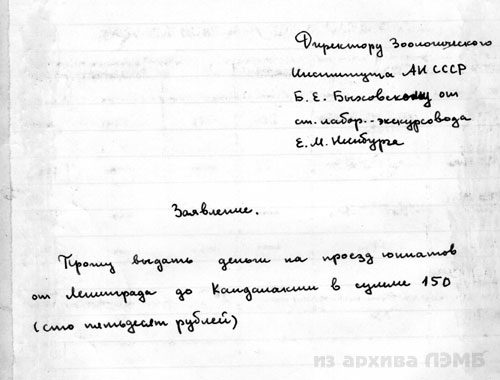 Директору Зоологического
Института АН СССР
Б. Е. Быховскому от
ст. лабор.-экскурсовода
Е. М. Нинбурга
Заявление.
Прошу выдать деньги на проезд юннатов
от Ленинграда до Кандалакши в сумме 150
(сто пятьдесят рублей)
из архива ЛЭМБ